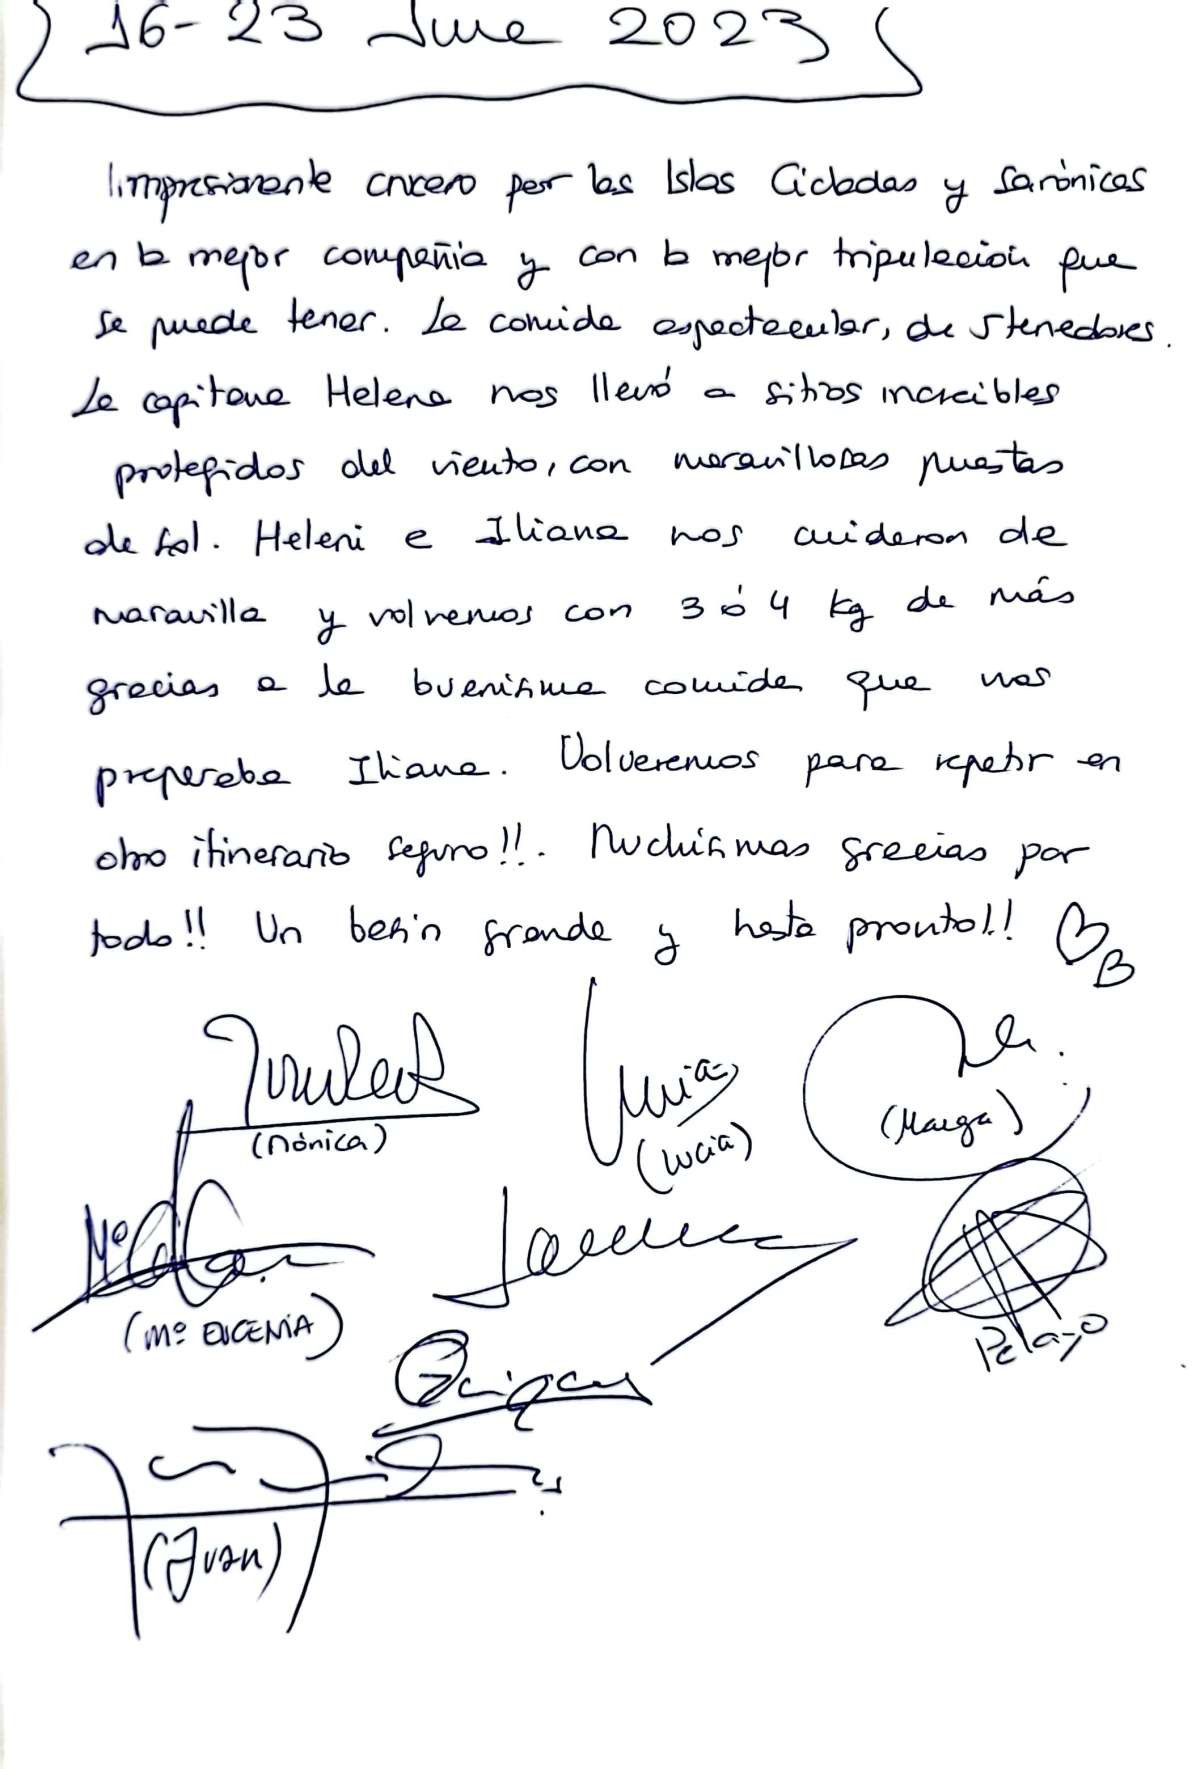 16-23 June 2023
Impresionante crucero por las Islas Cicladas y Sarónicas
en la mejor compañia y con la mejor tripulación que
se puede tener. La comida espectacular, de 5 tenedores.
La capitana Helena nos llevó a sitios increibles
protegidos del viento, con maravillosas puestas
de sol. Heleni e Iliana nos cuidaron de
maravilla y volvemos con 3 ó 4 kg de más
gracias a la buenisima comida que nos
preparaba Iliana. Volveremos para repetir en
otro itinerario seguro!!. Muchisimas gracias por
todo!! Un besin grande y hasta pronto!!
(Mónica)
(Lucia)
(Marga)
(Mª EUGENIA)
Pelayo
(Juan)